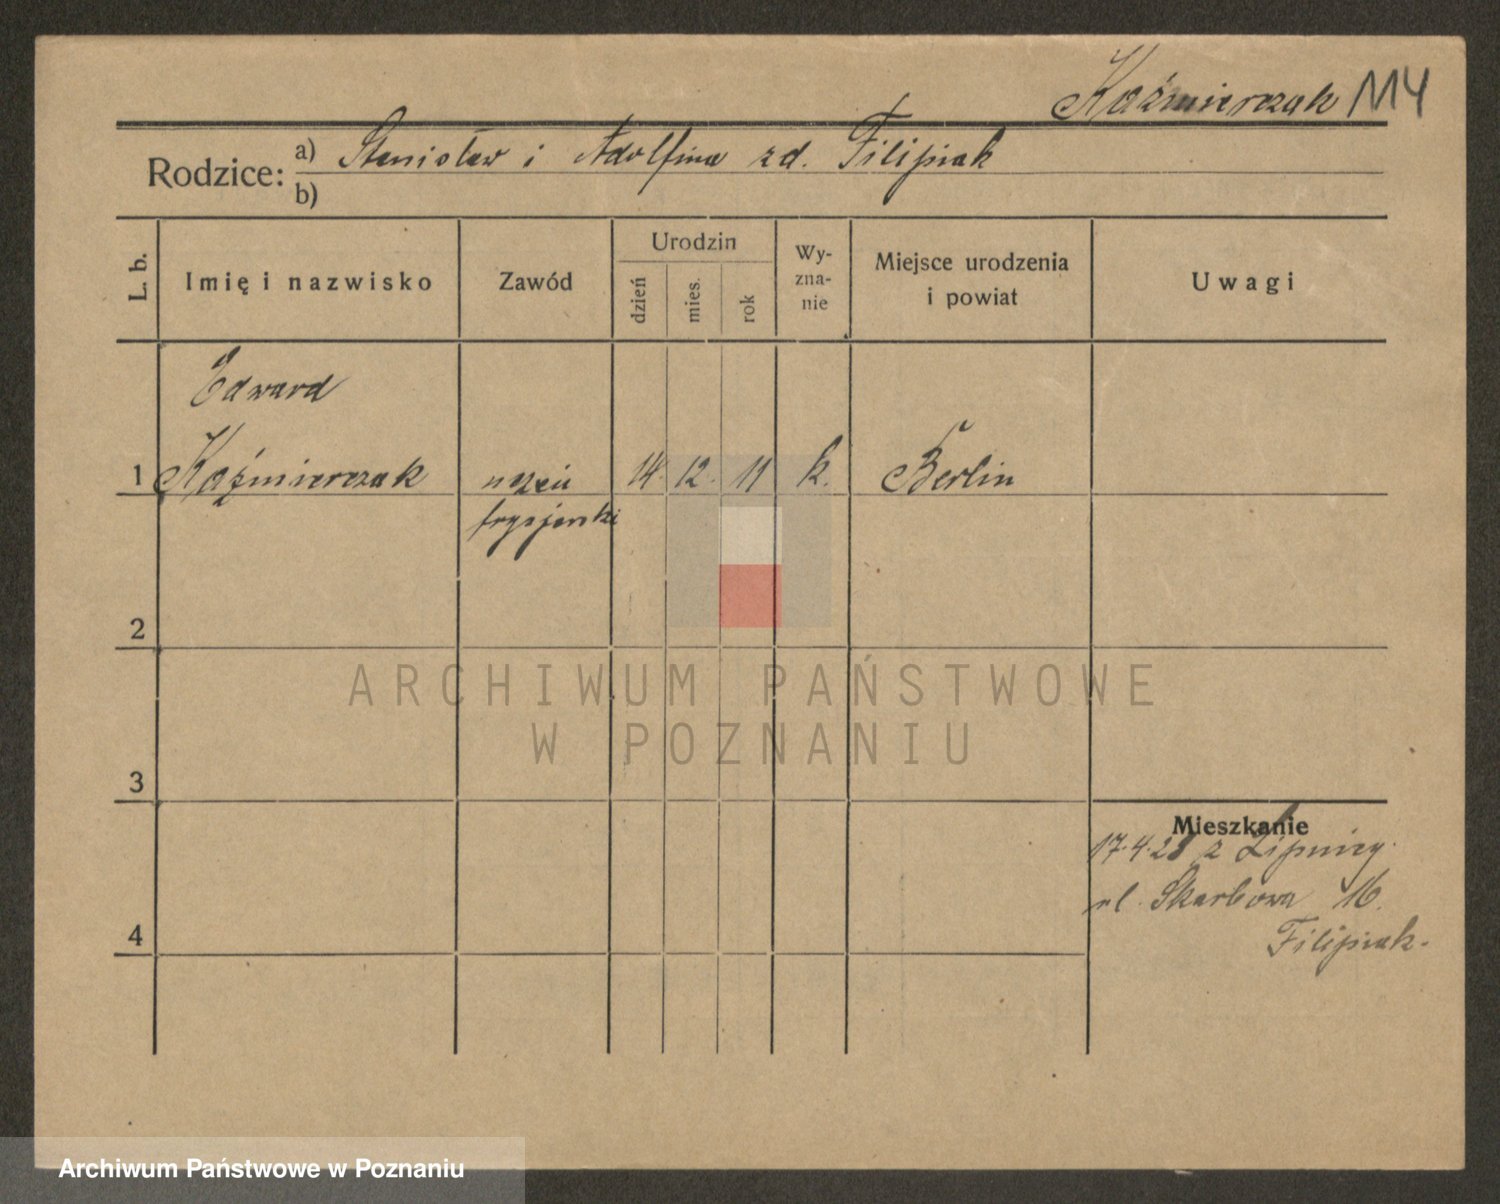 Kaźmierczak 114
Rodzice: a) Stanisław i Adolfina zd. Filipiak
b)
L. b.
Imię i nazwisko
Zawód
Urodzin
dzień
mies.
rok
Wy-
zna-
nie
Miejsce urodzenia
i powiat
Uwagi
Edward
1 Kaźmierczak uczeń 14. 12. 11 k. Berlin
fryzjerski
2
3
4
Mieszkanie
17.4.28 z Lipnicy
ul. Skarbowa 16.
Filipiak.
ARCHIWUM PAŃSTWOWE
W POZNANIU
Archiwum Państwowe w Poznaniu